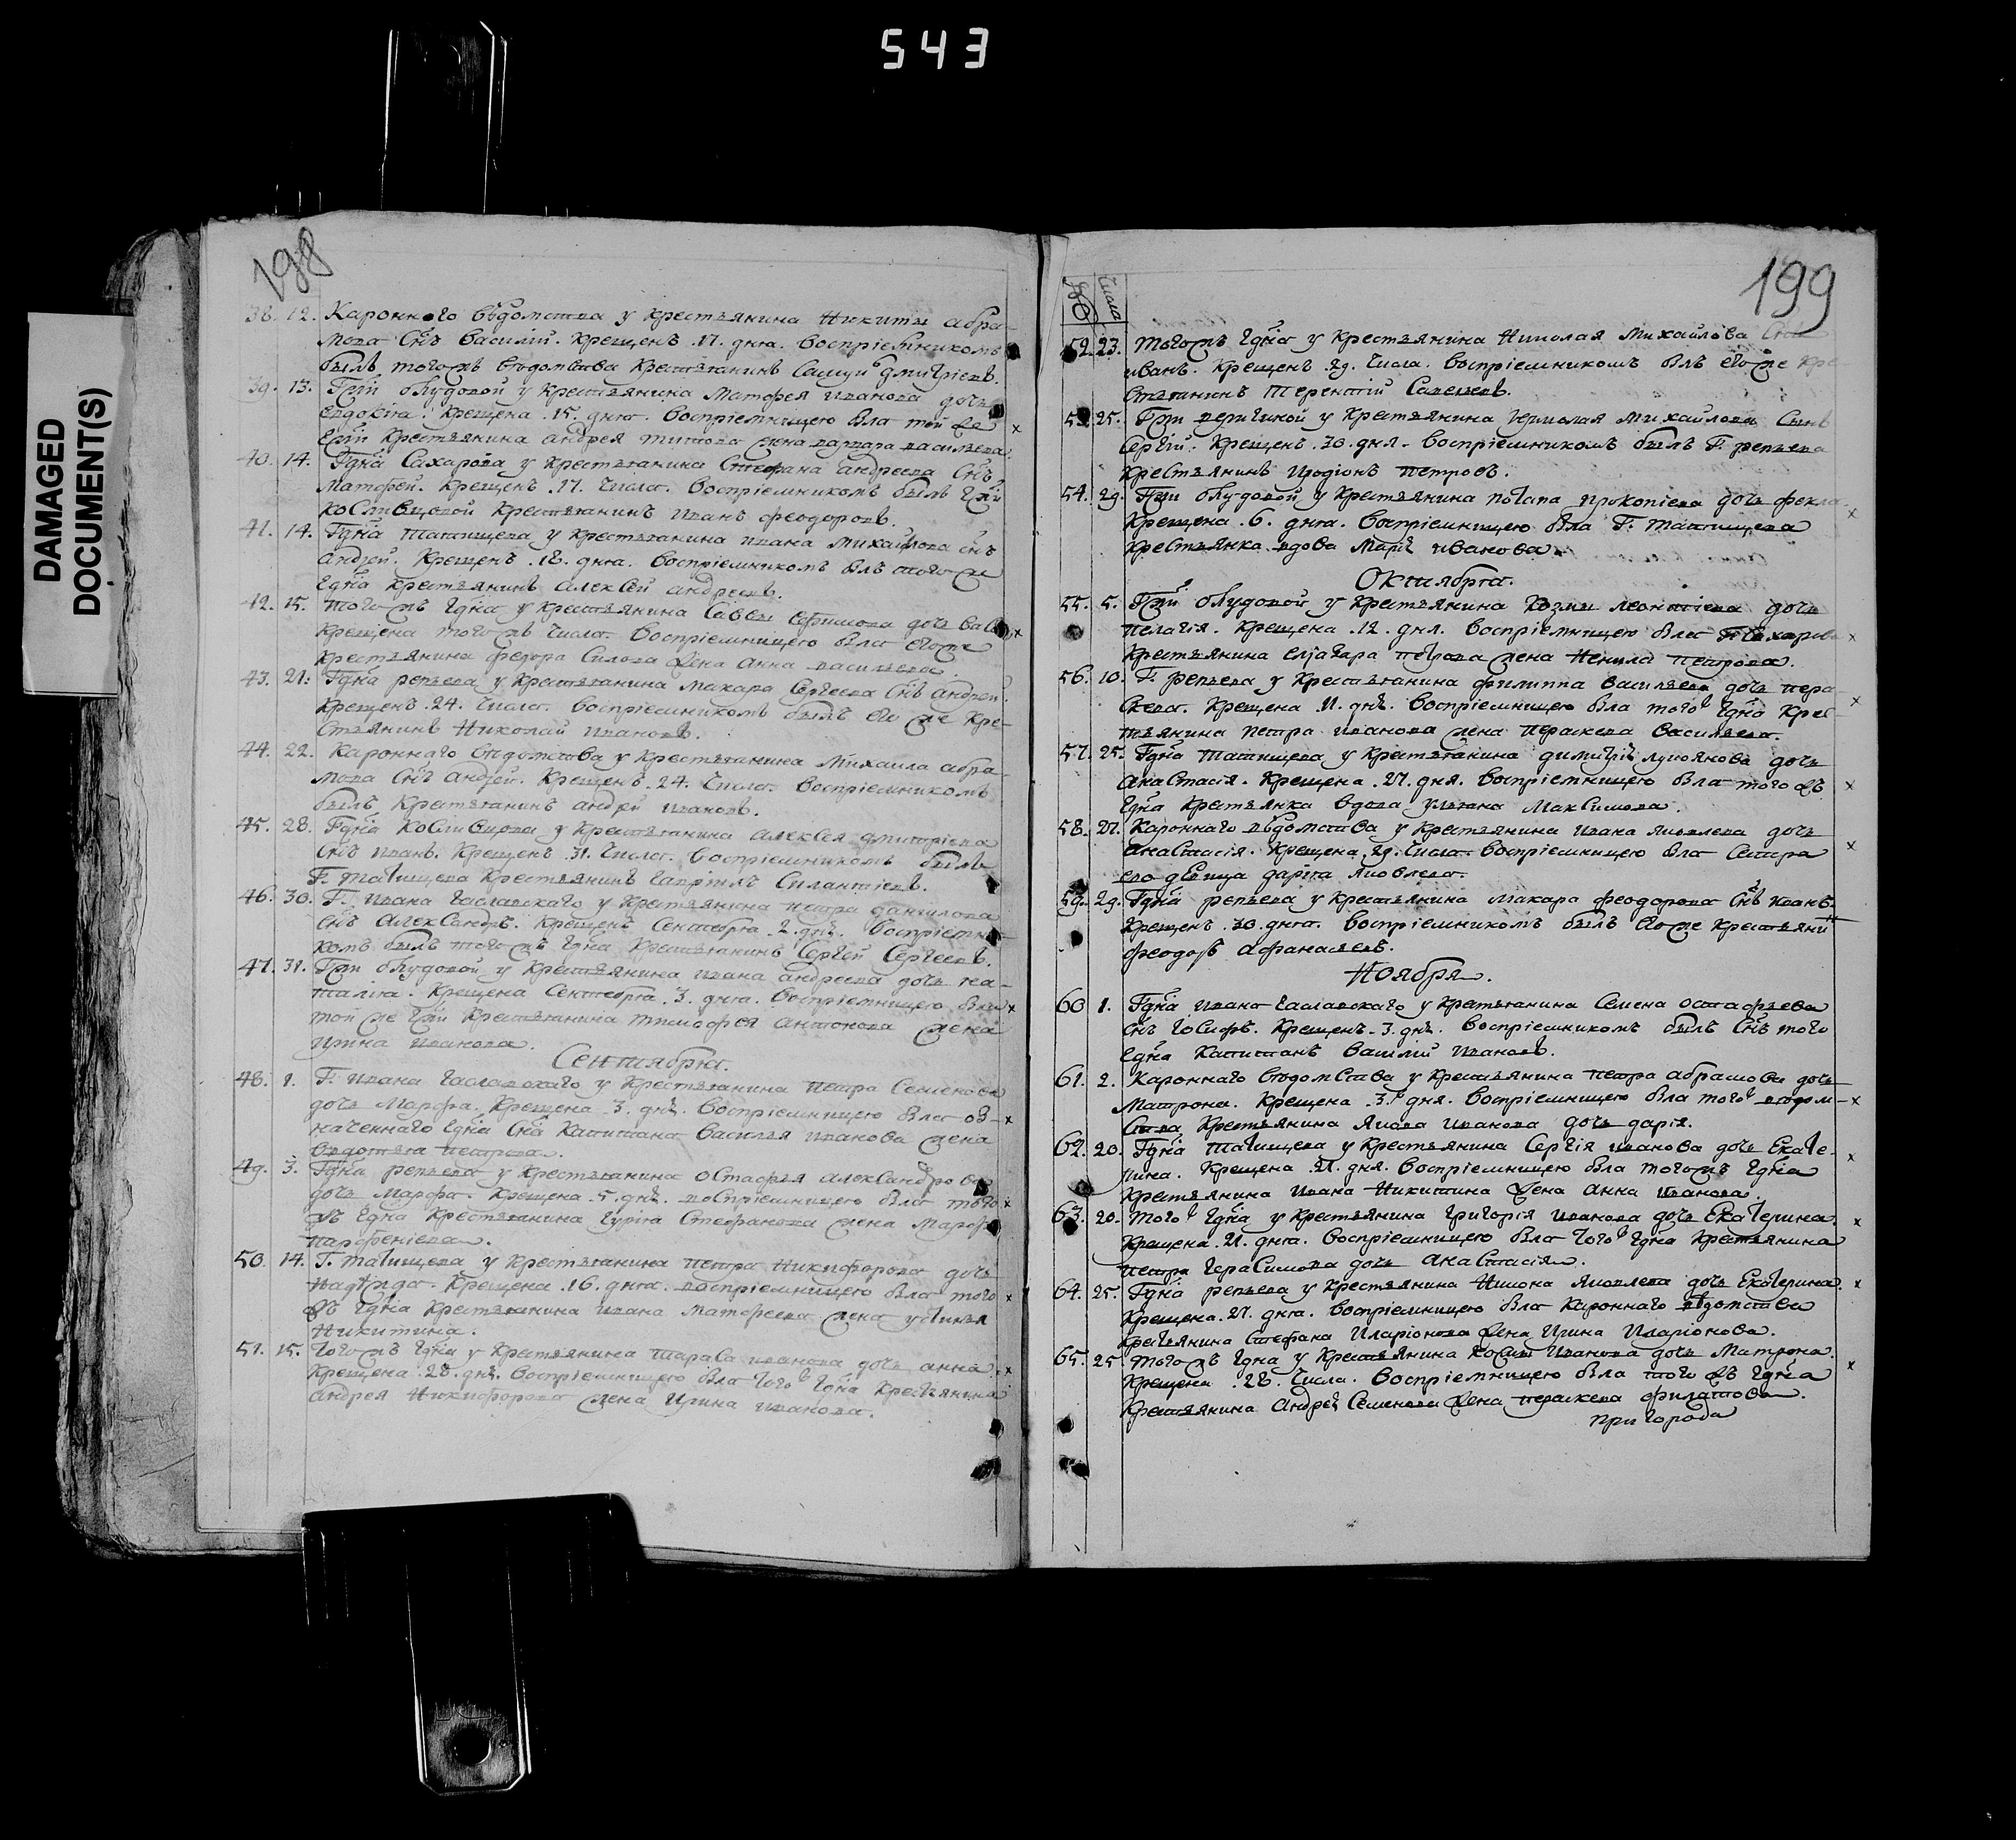 543
DAMAGED
DOCUMENT(S)
198
38. 12. Каронного вѣдомства у крестьянина Никиты абра-
мова Снъ Василій. Крещенъ .17. дня. воспріемникомъ
былъ тогожъ вѣдомства Крестьянинъ дмитріевъ.
39. 13. Гжи облудовой у крестьянина матфея иванова дочь
евдокія. Крещена .15. дня. воспріемницею была той же
Гжи Крестьянина андрея титова жена варвара васильева.
40. 14. Гдна Сахарова у крестьянина Стефана андреева Снъ
матфей. Крещенъ .17. числа. воспріемникомъ былъ Гжи
крестьянинъ иванъ феодоровъ.
41. 14. Гдна татищева у крестьянина ивана михайлова снъ
андрей. Крещенъ .18. дня. воспріемникомъ былъ того же
Гдна крестьянинъ алексей андреевъ.
42. 15. тогожъ Гдна у крестьянина Саввы ефимова дочь
Крещена того жъ числа. воспріемницею была егоже
крестьянина феодора Силова жена анна васильева.
43. 21. Гдна репьева у крестьянина макара Сергеева Снъ андрей.
Крещенъ .24. числа. воспріемникомъ былъ его же кре-
стьянинъ Николай ивановъ.
44. 22. Каронного вѣдомства у крестьянина михаила абра-
мова Снъ андрей. Крещенъ .24. числа. воспріемникомъ
былъ крестьянинъ андрей ивановъ.
45. 28. Гдна у крестьянина алексея дмитріева
Снъ иванъ. Крещенъ .31. числа. воспріемникомъ былъ
Г. татищева крестьянинъ гавріилъ Силантіевъ.
46. 30. Г. ивана у крестьянина петра данилова
снъ александръ. Крещенъ Сентября .2. дня. воспріемни-
комъ былъ тогожъ Гдна крестьянинъ Сергей Сергеевъ.
47. 31. Гжи облудовой у крестьянина ивана андреева дочь на-
талія. Крещена Сентября .3. дня. воспріемницею была
той же Гжи крестьянина тимофея антонова жена
ирина иванова.
Сентября.
48. 1. Г. ивана у крестьянина петра Семенова
дочь марфа. Крещена .3. дня. воспріемницею была оз-
наченнаго Гдна Сна Капитана василья иванова жена
петрова.
49. 3. Гдна репьева у крестьянина остафья александрова
дочь марфа. Крещена .5. дня. воспріемницею была того
жъ Гдна крестьянина гурія Стефанова жена марфа
парфеніева.
50. 14. Г. татищева у крестьянина петра Никифорова дочь
надѣжда. Крещена .16. дня. воспріемницею была того
жъ Гдна крестьянина ивана матфеева жена устинья
Никитина.
51. 15. тогожъ Гдна у крестьянина тараса иванова дочь анна.
Крещена .28. дня. воспріемницею была того Гдна крестьянина
андрея Никифорова жена ирина иванова.
199
числа
52. 23. тогожъ Гдна у крестьянина Николая михайлова Снъ
иванъ. Крещенъ .29. числа. воспріемникомъ былъ егоже кре
стьянинъ терентій Савельевъ.
53. 25. Гжи у крестьянина Николая михайлова Сынъ
Сергій. Крещенъ .30. дня. воспріемникомъ былъ Г. репьева
крестьянинъ иродіонъ петровъ.
54. 29. Гжи облудовой у крестьянина потапа прокопіева дочь фекла
Крещена .6. дня. воспріемницею была Г. татищева
крестьянка вдова марія иванова.
Октября.
55. 5. Гжи облудовой у крестьянина козмы леонтіева дочь
пелагія. Крещена .12. дня. воспріемницею была Г. Сахарова
крестьянина елиазара петрова жена Ненила петрова.
56. 10. Г. репьева у крестьянина филиппа васильева дочь пера-
скева. Крещена .11. дня. воспріемницею была того Гдна крес-
тьянина петра иванова жена параскева васильева.
57. 25. Гдна татищева у крестьянина димитрія лукоянова дочь
анастасія. Крещена .27. дня. воспріемницею была того жъ
Гдна крестьянка вдова ульяна максимова.
58. 27. Каронного вѣдомства у крестьянина ивана яковлева дочь
анастасія. Крещена .29. числа. воспріемницею была сестра
ево дѣвица дарія яковлева.
59. 29. Гдна репьева у крестьянина макара феодорова Снъ иванъ.
Крещенъ .30. дня. воспріемникомъ былъ егоже крестьянинъ
феодоръ афанасьевъ.
Ноября.
60 1. Гдна ивана у крестьянина Семена остафьева
снъ іосифъ. Крещенъ .3. дня. воспріемникомъ былъ Снъ того
Гдна Капитанъ василій ивановъ.
61. 2. Каронного вѣдомства у крестьянина петра абрамова дочь
матрона. Крещена .3. дня. воспріемницею была того вѣдом-
ства крестьянина якова иванова дочь дарія.
62. 20. Гдна татищева у крестьянина Сергія иванова дочь Екате-
рина. Крещена .21. дня. воспріемницею была тогожъ Гдна
крестьянина ивана Никитина жена анна иванова.
63. 20. того Гдна у крестьянина григорія иванова дочь Екатерина.
Крещена .21. дня. воспріемницею была того Гдна крестьянина
петра герасимова дочь анастасія.
64. 25. Гдна репьева у крестьянина Никона яковлева дочь Екатерина.
Крещена .27. дня. воспріемницею была каронного вѣдомства
крестьянина Стефана иларіонова жена ирина иларіонова.
65. 25. тогожъ Гдна у крестьянина космы иванова дочь матрона.
Крещена .28. числа. воспріемницею была того жъ Гдна
крестьянина андрея Семенова жена параскева филатова.
при города